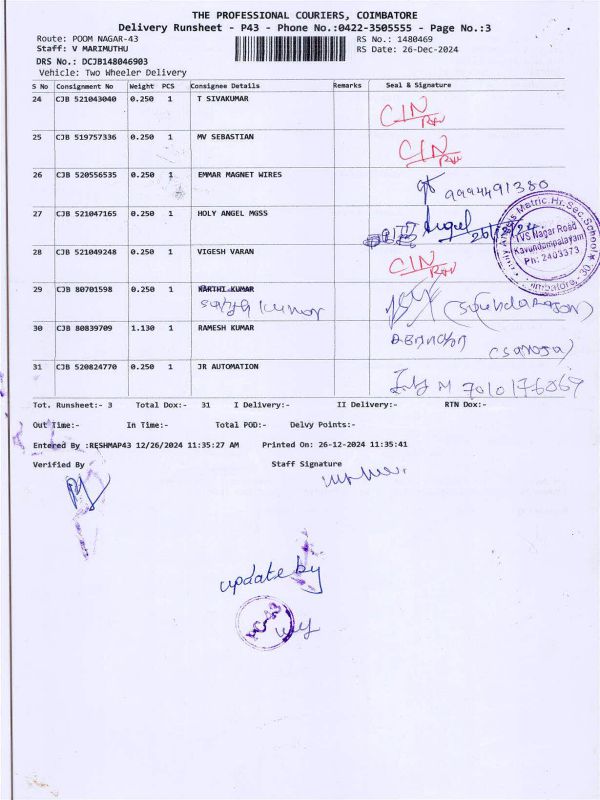 THE PROFESSIONAL COURIERS, COIMBATORE
Delivery Runsheet - P43 - Phone No.:0422-3505555 - Page No.:3
Route: POOM NAGAR-43 RS No.: 1480469
Staff: V MARIMUTHU RS Date: 26-Dec-2024
DRS No.: DCJB148046903
Vehicle: Two Wheeler Delivery
S No Consignment No Weight PCS Consignee Details Remarks Seal & Signature
24 CJB 521043040 0.250 1 T SIVAKUMAR CIN
25 CJB 519757336 0.250 1 MV SEBASTIAN CIN
26 CJB 520556535 0.250 1 EMMAR MAGNET WIRES 9994491380
27 CJB 521047165 0.250 1 HOLY ANGEL MGSS Angel 26/12/24
Matric.Hr.Sec.School
TVS Nagar Road
Kavundampalayam
Ph: 2403373
28 CJB 521049248 0.250 1 VIGESH VARAN CIN
29 CJB 80701598 0.250 1 KARTHI KUMAR
30 CJB 80839709 1.130 1 RAMESH KUMAR (saroja)
31 CJB 520824770 0.250 1 JR AUTOMATION
Tot. Runsheet:- 3 Total Dox:- 31 I Delivery:- II Delivery:- RTN Dox:-
Out Time:- In Time:- Total POD:- Delvy Points:-
Entered By :RESHMAP43 12/26/2024 11:35:27 AM Printed On: 26-12-2024 11:35:41
Verified By Staff Signature
update by